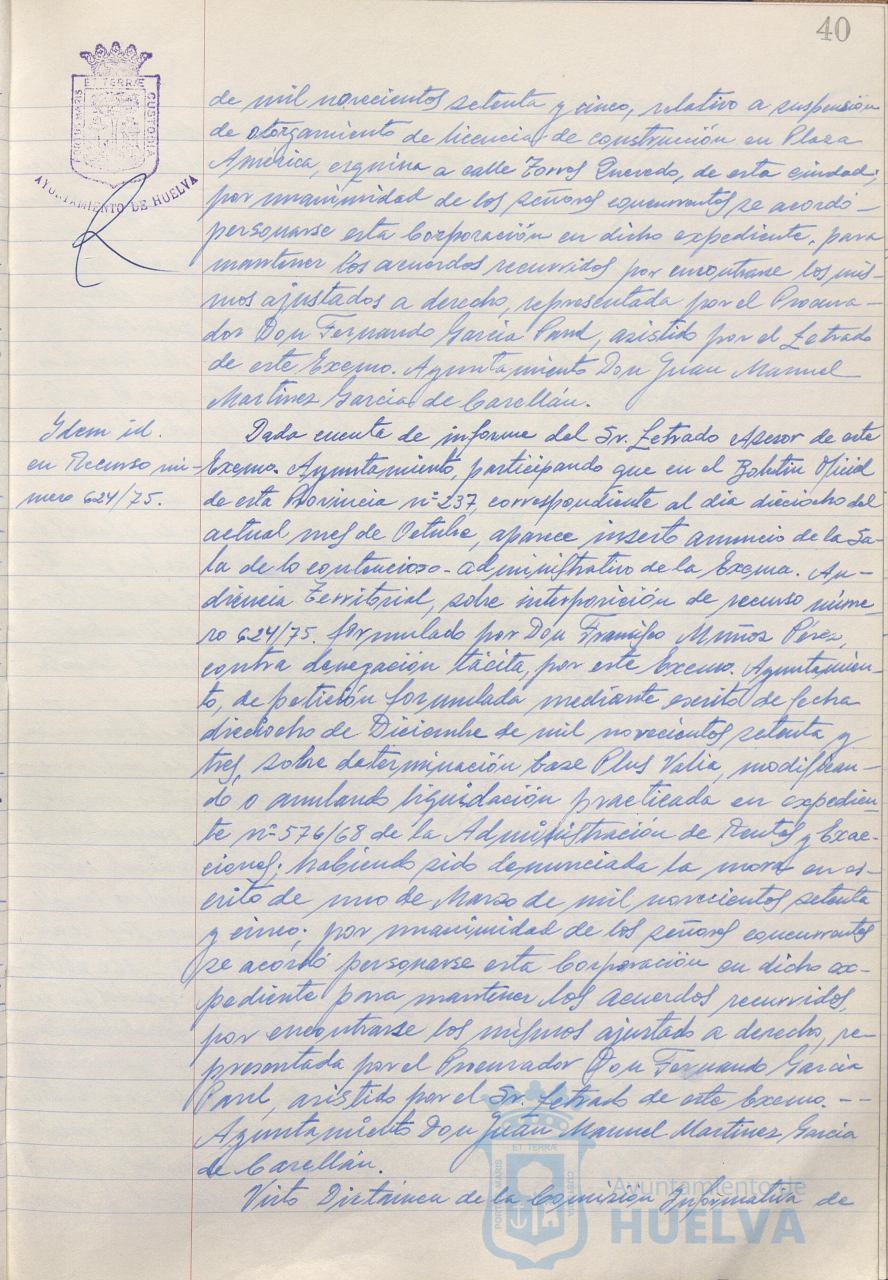 40
PORTUS MARIS
ET TERRÆ
CUSTODIA
AYUNTAMIENTO DE HUELVA
de mil novecientos setenta y cinco, relativo a suspensión
de otorgamiento de licencia de construcción en Plaza
América, esquina a calle Torres Quevedo, de esta ciudad;
por unanimidad de los señores concurrentes se acordó
personarse esta Corporación en dicho expediente, para
mantener los acuerdos recurridos por encontrarse los mis-
mos ajustados a derecho, representada por el Procura-
dor Don Fernando Garcia Parul, asistido por el Letrado
de este Excmo. Ayuntamiento Don Juan Manuel
Martinez Garcia de Casellán.
Idem id.
en Recurso nú-
mero 624/75.
Dada cuenta de informe del Sr. Letrado Asesor de este
Excmo. Ayuntamiento, participando que en el Boletin Oficial
de esta Provincia nº 237, correspondiente al dia dieciocho del
actual mes de Octubre, aparece inserto anuncio de la Sa-
la de lo contencioso-administrativo de la Excma. Au-
diencia Territorial, sobre interposición de recurso núme-
ro 624/75. formulado por Don Francisco Muñoz Pérez,
contra denegación tácita, por este Excmo. Ayuntamien-
to, de petición formulada mediante escrito de fecha
dieciocho de Diciembre de mil novecientos setenta y
tres, sobre determinación base Plus Valia, modifican-
do o anulando liquidación practicada en expedien-
te nº 576/68 de la Administración de Rentas y Exac-
ciones; habiendo sido denunciada la mora en es-
crito de uno de Marzo de mil novecientos setenta
y cinco; por unanimidad de los señores concurrentes
se acordó personarse esta Corporación en dicho ex-
pediente para mantener los acuerdos recurridos,
por encontrarse los mismos ajustado a derecho, re-
presentada por el Procurador Don Fernando Garcia
Parul, asistido por el Sr. Letrado de este Excmo. --
Ayuntamiento Don Juan Manuel Martinez Garcia
de Casellán.
Visto Dictamen de la Comisión Informativa de
PORTUS MARIS
ET TERRÆ
CUSTODIA
Ayuntamiento de
HUELVA